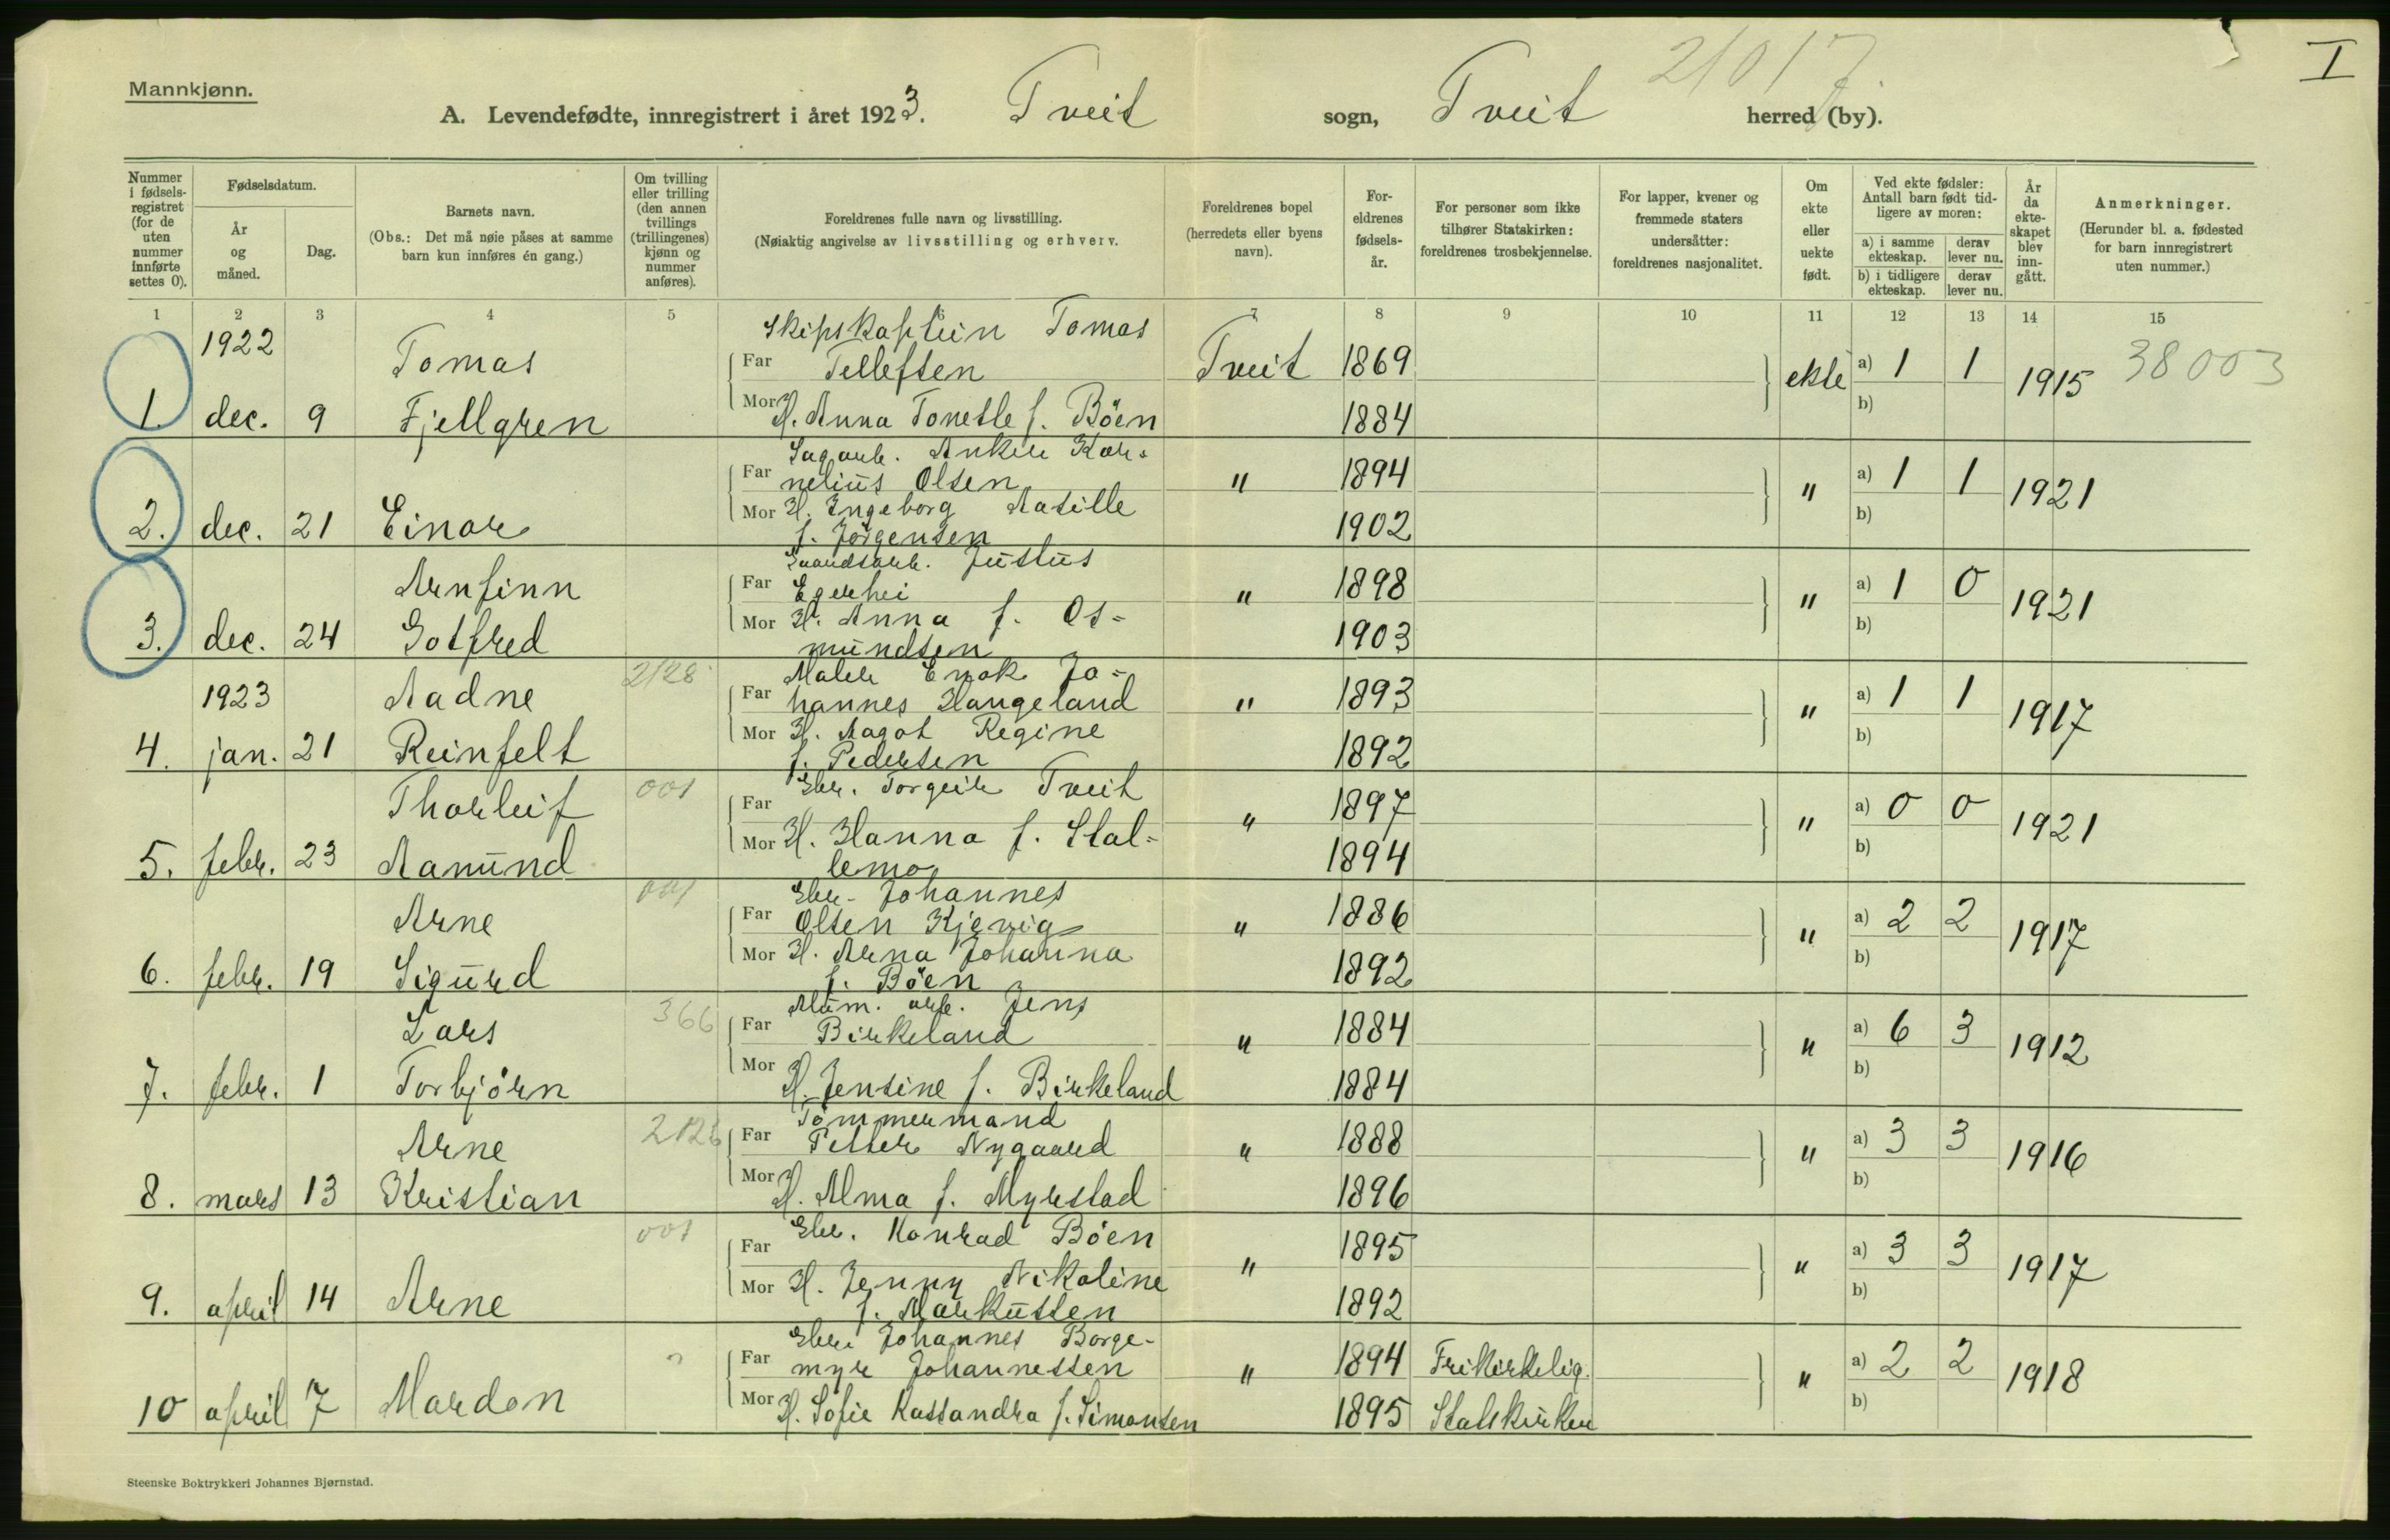 Mannkjønn.
I
21017
A. Levendefødte, innregistrert i året 1923. Tveit sogn, Tveit herred (by).
Nummer i fødsels-registret (for de uten nummer innførte settes 0).
Fødselsdatum.
År og måned.
Dag.
Barnets navn.
(Obs.: Det må nøie påses at samme barn kun innføres én gang.)
Om tvilling eller trilling (den annen tvillings (trillingenes) kjønn og nummer anføres).
Foreldrenes fulle navn og livsstilling.
(Nøiaktig angivelse av livsstilling og erhverv.
Foreldrenes bopel (herredets eller byens navn).
For-eldrenes fødsels-år.
For personer som ikke tilhører Statskirken: foreldrenes trosbekjennelse.
For lapper, kvener og fremmede staters undersåtter: foreldrenes nasjonalitet.
Om ekte eller uekte født.
Ved ekte fødsler: Antall barn født tid-ligere av moren:
a) i samme ekteskap.
derav lever nu.
b) i tidligere ekteskap.
derav lever nu.
År da ekte-skapet blev inn-gått.
Anmerkninger.
(Herunder bl. a. fødested for barn innregistrert uten nummer.)
1 2 3 4 5 6 7 8 9 10 11 12 13 14 15
1922 Tomas Skipskaptein Tomas
Far Tellefsen Tveit 1869 ekte a) 1 1 1915 38003
1. dec. 9 Fjellgren Mor H. Anna Tonette f. Böen 1884 b)
Sagarb. Anker Kor-
Far nelius Olsen " 1894 " a) 1 1 1921
2. dec. 21 Einar Mor H. Ingeborg Aasille 1902 b)
f. Jörgensen
Arnfinn Justus
Far Egerhei " 1898 " a) 1 0 1921
3. dec. 24 Gotfred Mor H. Anna f. Os- 1903 b)
mundsen
1923 Aadne 2128 Maler Enok Jo-
Far hannes Haugeland " 1893 " a) 1 1 1917
4. jan. 21 Reinfelt Mor H. Aagot Regine 1892 b)
f. Pedersen
Thorleif 001 Far Gbr. Torgeir Tveit " 1897 " a) 0 0 1921
5. febr. 23 Aamund Mor H. Hanna f. Stal- 1894 b)
lemo
Arne 001 Gbr. Johannes
Far Olsen Kjevig " 1886 " a) 2 2 1917
6. febr. 19 Sigurd Mor H. Anna Johanna 1892 b)
f. Böen
Lars 366 Alum. arb. Jens
Far Birkeland " 1884 " a) 6 3 1912
7. febr. 1 Torbjörn Mor H. Jensine f. Birkeland 1884 b)
Arne 2126 Tömmermand
Far Petter Nygaard " 1888 " a) 3 3 1916
8. mars 13 Kristian Mor H. Alma f. Myrstad 1896 b)
001 Far Gbr. Konrad Böen " 1895 " a) 3 3 1917
9. april 14 Arne Mor H. Jenny Nikoline 1892 b)
f. Markussen
Gbr. Johannes Borge-
Far myr Johannessen " 1894 Frikirkelig. " a) 2 2 1918
10 april 7 Mardon Mor H. Sofie Kassandra f. Simonsen 1895 Statskirken b)
Steenske Boktrykkeri Johannes Bjørnstad.